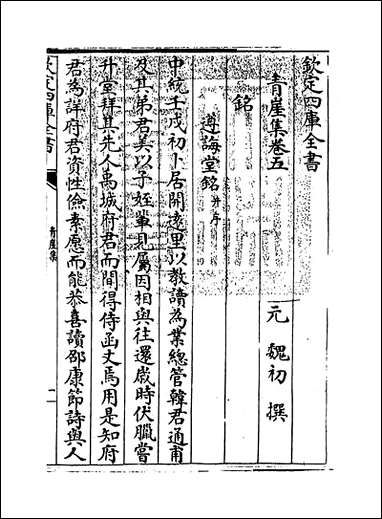 欽定四庫全書
青崖集卷五
元 魏初 撰
銘
遵誨堂銘并序
中統壬戌初卜居開遠里以教讀為業總管韓君通甫
及其弟君美以子姪輩見屬因相與往還歲時伏臘嘗
升堂拜其先人禹城府君而間得侍函丈焉用是知府
君為詳府君資性儉素愿而能恭喜讀邵康節詩與人
欽定四庫全書
青崖集